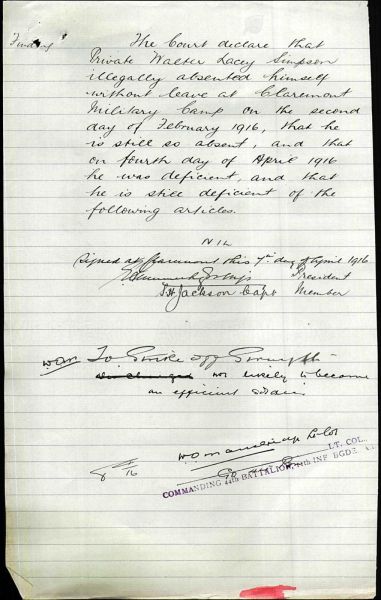 Finding
The Court declare that
Private Walter Lacey Simpson
illegally absented himself
without leave at Claremont
Military Camp on the second
day of February 1916, that he
is still so absent, and that
on fourth day of April 1916
he was deficient, and that
he is still deficient of the
following articles.
NIL
Signed at Claremont this 7th day of April 1916
President
Jackson Capt Member
To Strike off Strength
discharged not likely to become
an efficient soldier
Lt Col
8/4/16
LT. COL.
COMMANDING 44th BATTALION, 11th INF BGDE. A.I.F.